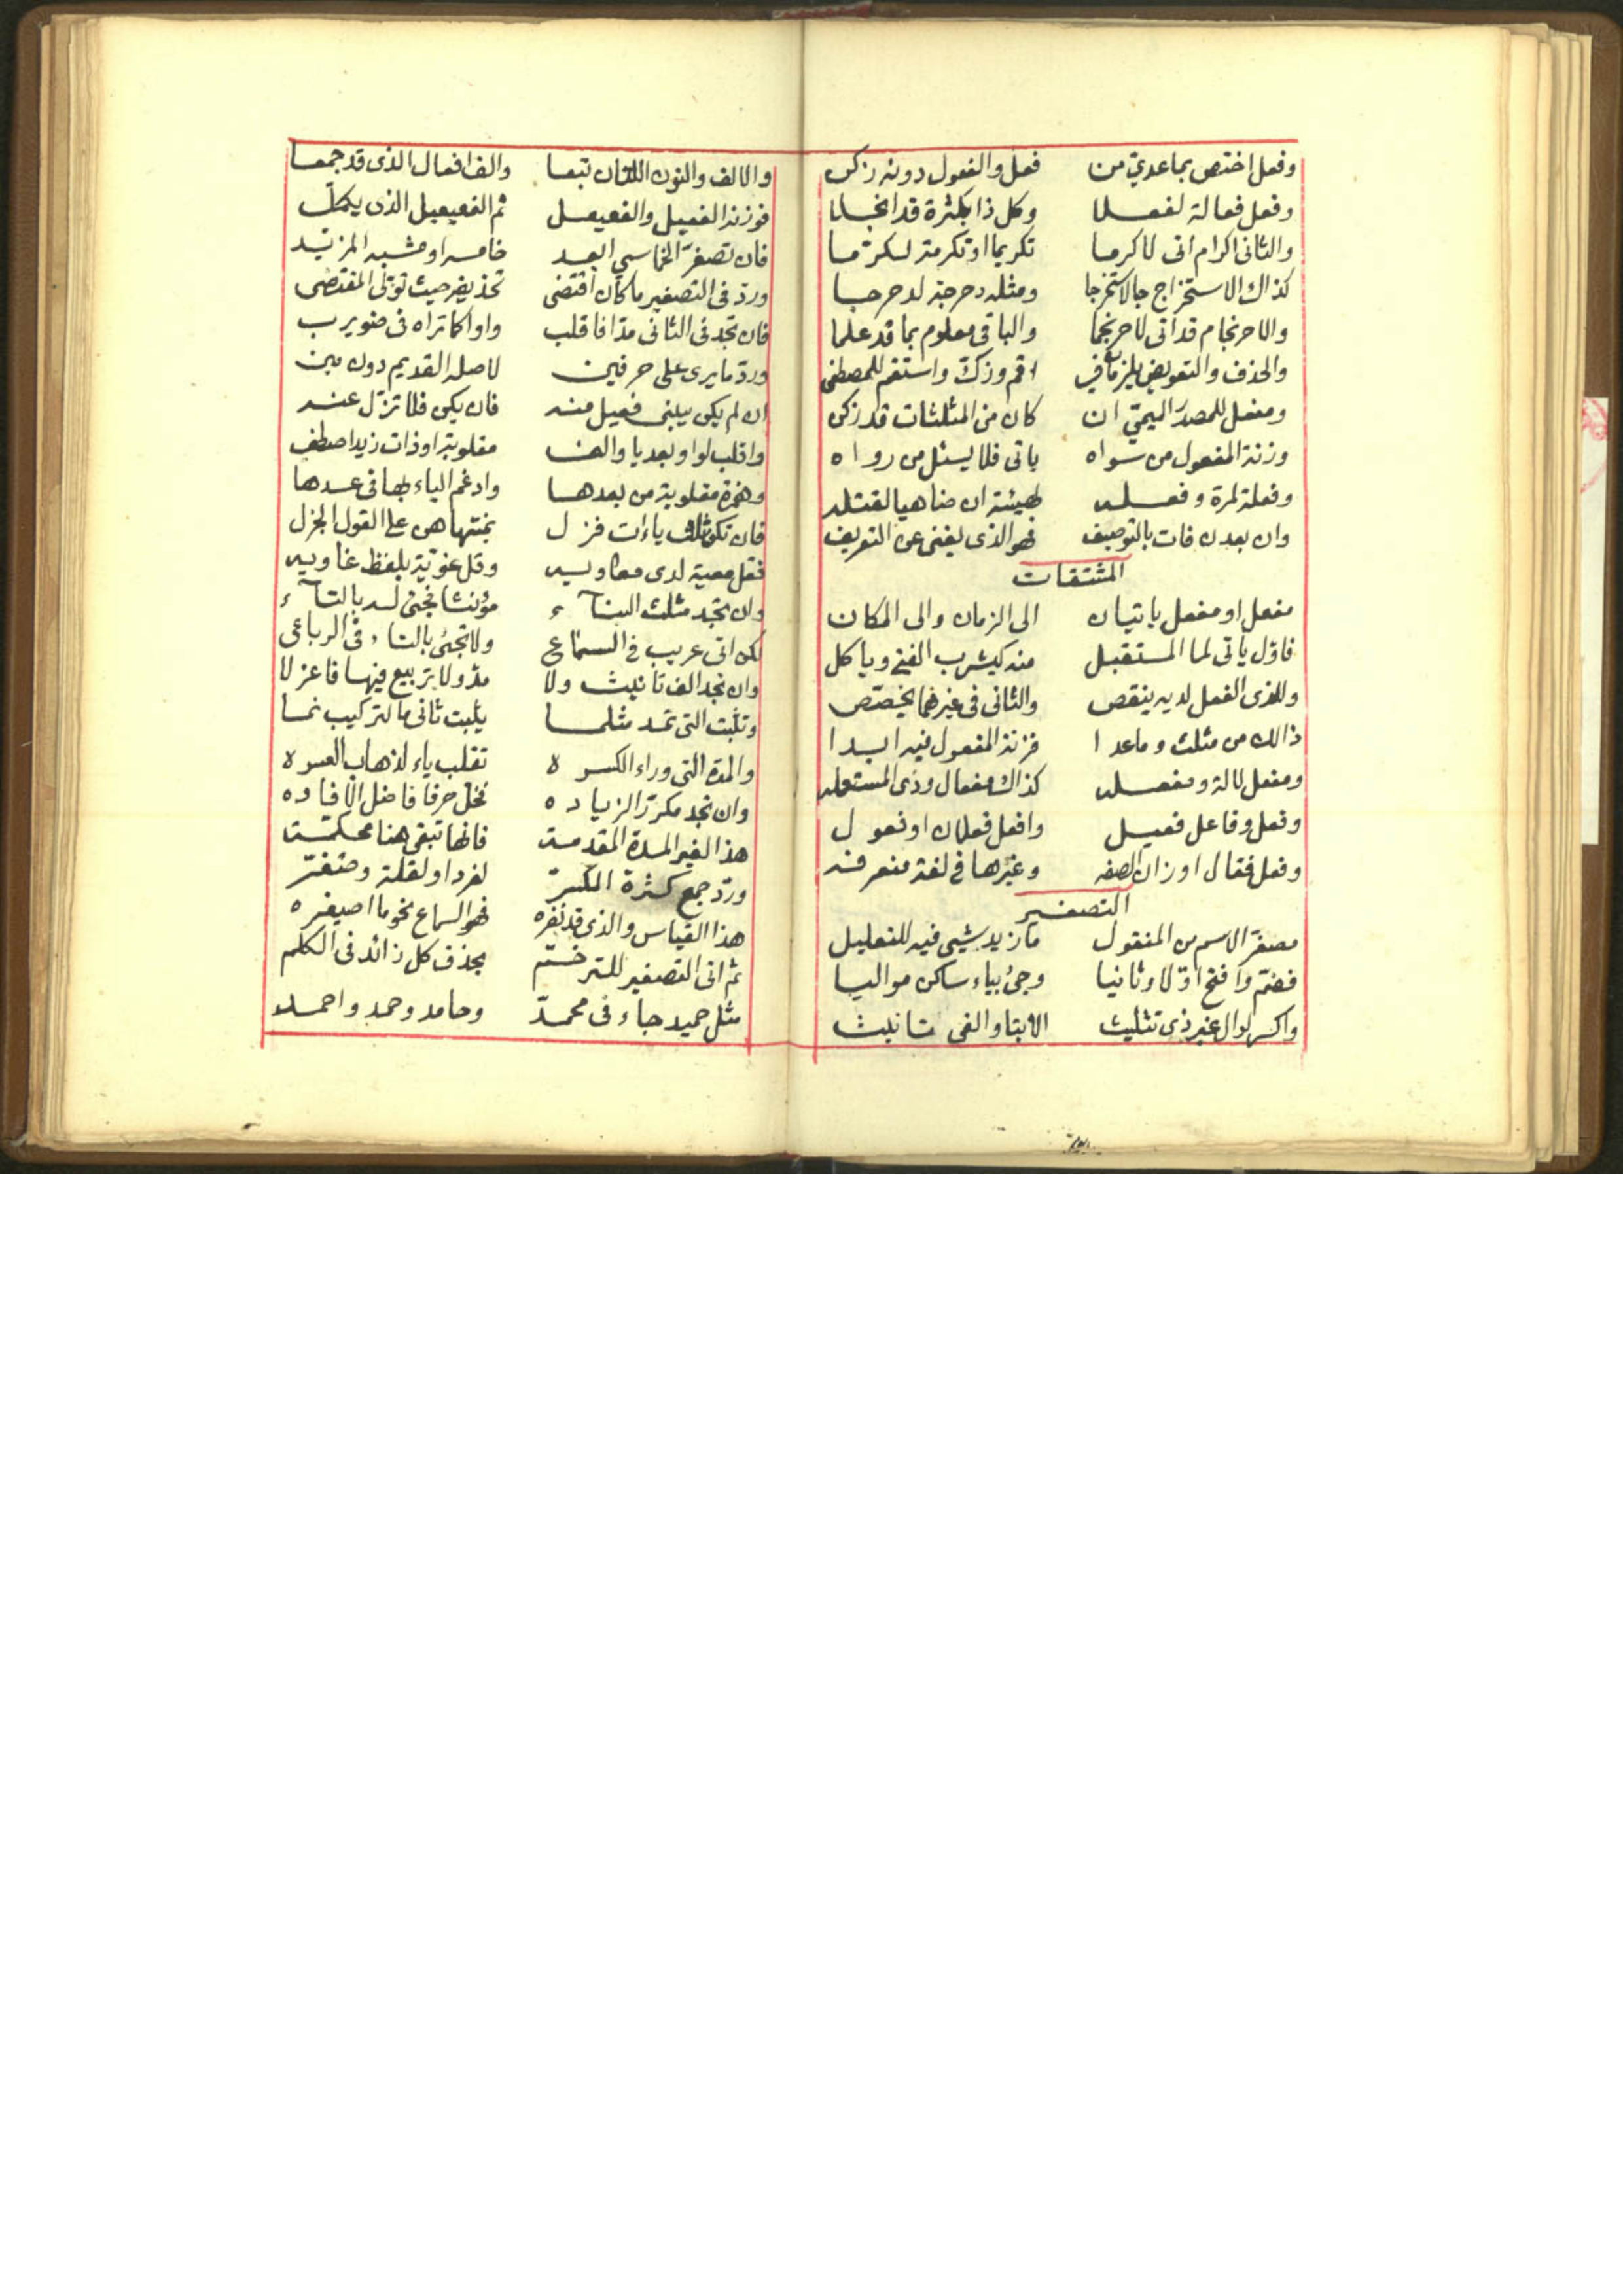 وفعل اختص بما عدي من فعل والفعول دونه زكن
وفعل فعالة لفعلا وكل ذا بكثرة قد انجلا
والثانى اكرام اتى لاكرما تكريما او تكرمة لكرما
كذاك الاستخراج جا لاستخرجا ومثله دحرجة لدحرجا
والاحرنجام قد اتى لاحرنجما والباقى معلوم بما قد علما
والحذف والتعويض يلزمان فى اقم وزكّ واستقم للمصطفى
ومفعل للمصدر الميمىّ ان كان من المثلثات قد زكن
وزنة المفعول من سواه ياتى فلا يسئل من رواه
وفعلة لمرة وفعله لهيئة ان ضاهيا لقتله
وان بعدن فات بالتوصيف فهو الذى يغنى عن التعريف
المشتقات
مفعل او مفعل ياتيان الى الزمان والى المكان
فاوّل ياتى لما المستقبل منه كيشرب الفتى وياكل
وللذى الفعل لديه ينقص والثانى فى غيرهما يختصّ
ذالك من مثلث وما عدا فزنة المفعول فيه ابدا
ومفعل لالة ومفعله كذاك مفعال وذى المستعمله
وفعل وفاعل فعيل وافعل فعلان او فعول
وفعل فعّال اوزان الصفه وغيرها فى لغة منعرفه
التصغير
مصغّر الاسم من المنقول ما زيد شيى فيه للتعليل
فضمّ وافتح اوّلا وثانيا وجئ بياء ساكن مواليا
واكسر لوال غير ذى تثليث الا بتا والفى تانيث
والالف والنون اللتان تبعا والف افعال الذى قد جمعا
فوزنه الفعيل والفعيعل ثم الفعيعيل الذى يكمل
فان تصغّر الخماسي ابعد خامسه او مشبه المزيّد
وردّ فى التصغير ما كان اقتضى تحذيفه حيث تولى المقتضى
فان تجد فى الثانى مدّا فاقلب واوا كما تراه فى ضويرب
وردّ ما يرى على حرفين لاصله القديم دون مين
ان لم يكن يبنى فعيل منه فان يكن فلا تزل عنه
واقلب لواو بعد يا والف مقلوبة او ذات زيد اصطف
وهمزة مقلوبة من بعدها وادغم الياء بها فى عدها
فان تكن ثلث ياءات فزل بمنتهاهن على القول الجزل
فقل معية لدى معاويه وقل غوّية بلفظ غاويه
وان تجد مثلث البناء مؤنثا فجئ له بالتاء
لكن اتى عريب فى السماعى ولا تجئ بالتاء فى الرباعى
وان تجد الف تانيث ولا مدّ ولا تربيع فيها فاعزلا
وتثبت التى تمد مثلما يثبت ثانى ما لتركيب نما
والمدة التى وراء الكسره تقلب ياء لذهاب العسره
وان تجد مكرّر الزياده فخلّ حرفا فاضل الافاده
هذا لغير المدة المقدمة فانها تبقى هنا محكمة
وردّ جمع كثرة المكسّر لفرد او لقلة وصغّر
هذا القياس والذى قد نفره فهو السماع نحو ما اصيغره
ثم اتى التصغير للترخم بحذف كل زائد فى الكلم
مثل حميد جاء فى محمدّ وحامد وحمد واحمد